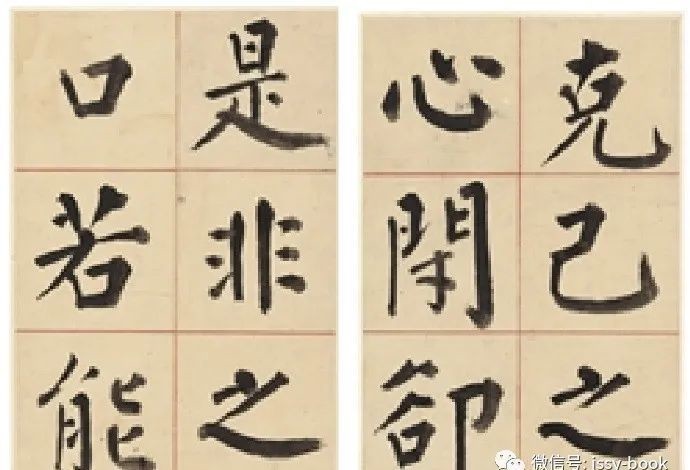 克己之
心閉卻
是非之
口若能
微信号: jssy-book